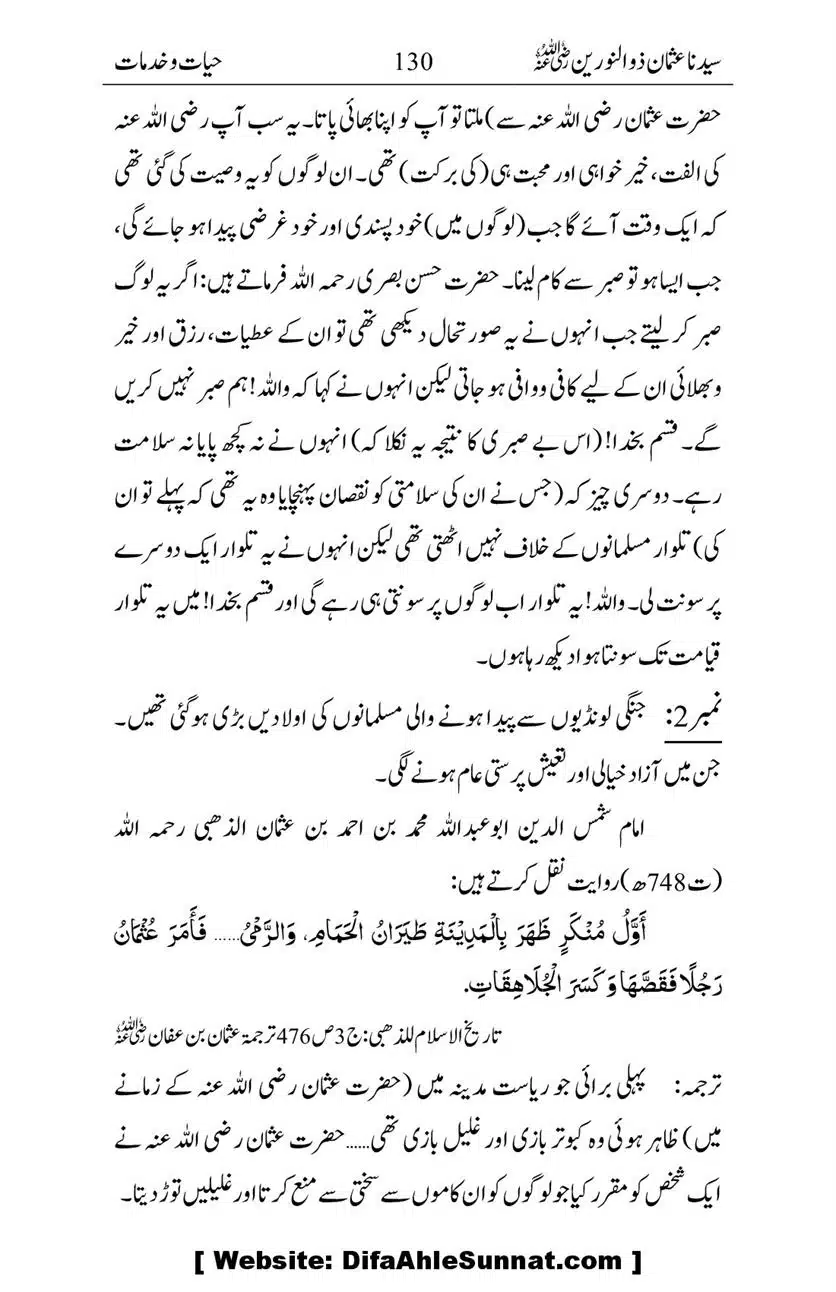 سیدنا عثمان ذوالنورین رضی اللہ عنہ 130 حیات و خدمات
حضرت عثمان رضی اللہ عنہ سے) ملتا تو آپ کو اپنا بھائی پاتا۔ یہ سب آپ رضی اللہ عنہ
کی الفت، خیر خواہی اور محبت ہی (کی برکت) تھی۔ ان لوگوں کو یہ وصیت کی گئی تھی
کہ ایک وقت آئے گا جب (لوگوں میں) خود پسندی اور خود غرضی پیدا ہو جائے گی،
جب ایسا ہو تو صبر سے کام لینا۔ حضرت حسن بصری رحمہ اللہ فرماتے ہیں: اگر یہ لوگ
صبر کر لیتے جب انہوں نے یہ صورتحال دیکھی تھی تو ان کے عطیات، رزق اور خیر
و بھلائی ان کے لیے کافی ووافی ہو جاتی لیکن انہوں نے کہا کہ واللہ! ہم صبر نہیں کریں
گے۔ قسم بخدا! (اس بے صبری کا نتیجہ یہ نکلا کہ) انہوں نے نہ کچھ پایا نہ سلامت
رہے۔ دوسری چیز کہ (جس نے ان کی سلامتی کو نقصان پہنچایا وہ یہ تھی کہ پہلے تو ان
کی) تلوار مسلمانوں کے خلاف نہیں اٹھتی تھی لیکن انہوں نے یہ تلوار ایک دوسرے
پر سونت لی۔ واللہ! یہ تلوار اب لوگوں پر سونتی ہی رہے گی اور قسم بخدا! میں یہ تلوار
قیامت تک سونتا ہوا دیکھ رہا ہوں۔
نمبر 2: جنگی لونڈیوں سے پیدا ہونے والی مسلمانوں کی اولادیں بڑی ہو گئی تھیں۔
جن میں آزاد خیالی اور تعیش پرستی عام ہونے لگی۔
امام شمس الدین ابو عبد اللہ محمد بن احمد بن عثمان الذھبی رحمہ اللہ
(ت748ھ) روایت نقل کرتے ہیں:
أَوَّلُ مُنْكَرٍ ظَهَرَ بِالْمَدِيْنَةِ طَيَرَانُ الْحَمَامِ، وَالرَّمْيُ...... فَأَمَرَ عُثْمَانُ
رَجُلًا فَقَصَّهَا وَكَسَرَ الْجُلَاهِقَاتِ.
تاریخ الاسلام للذھبی: ج3 ص476 ترجمۃ عثمان بن عفان رضی اللہ عنہ
ترجمہ: پہلی برائی جو ریاست مدینہ میں (حضرت عثمان رضی اللہ عنہ کے زمانے
میں) ظاہر ہوئی وہ کبوتر بازی اور غلیل بازی تھی...... حضرت عثمان رضی اللہ عنہ نے
ایک شخص کو مقرر کیا جو لوگوں کو ان کاموں سے سختی سے منع کرتا اور غلیلیں توڑ دیتا۔
[ Website: DifaAhleSunnat.com ]